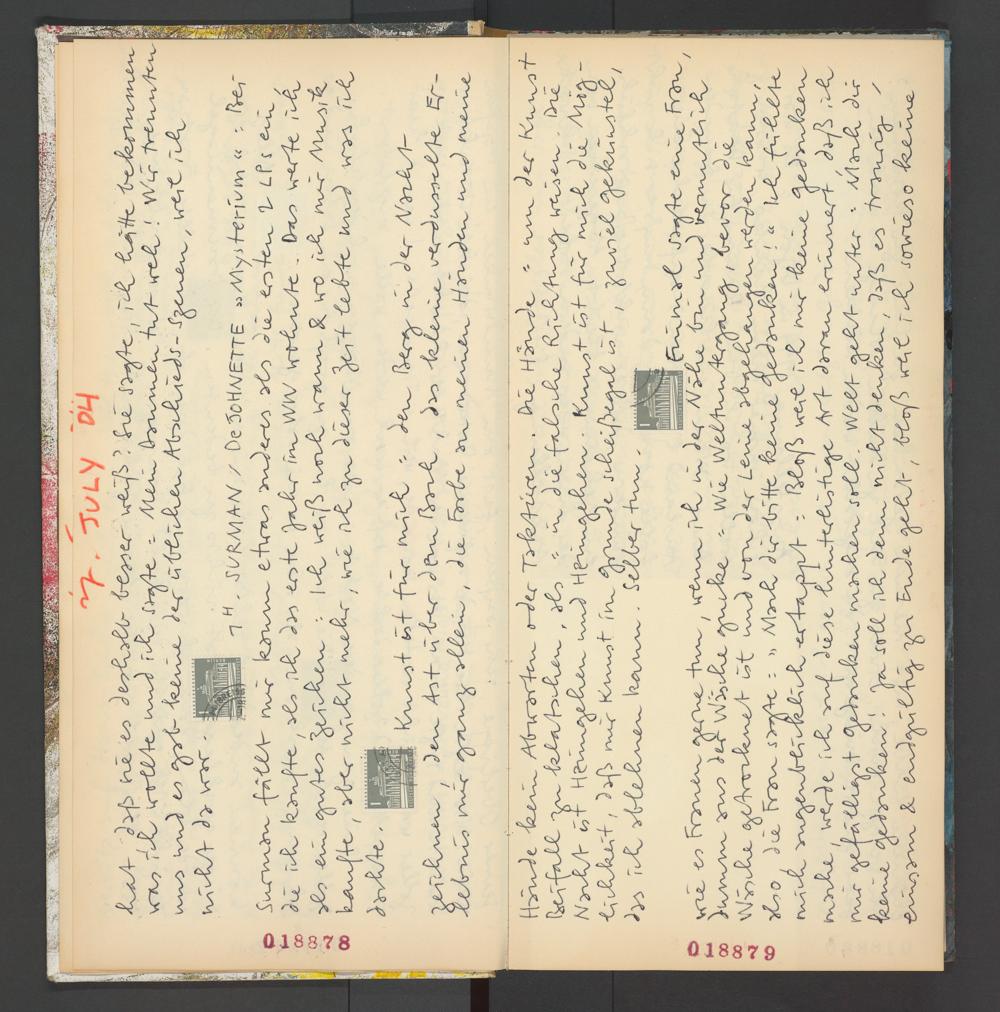 JULY 04
hat, daß sie es deshalb besser weiß? Sie sagte, ich hätte bekommen
was ich wollte und ich sagte: Mein Daumen tut weh! Wir trennten
uns und es gab keine der üblichen Abschieds-Szenen, weil ich
nicht da war.
74. SURMAN / DeJOHNETTE »Mysterium«: Bei
Surman fällt mir kaum etwas anderes als die ersten 2 LPs ein,
die ich kaufte, als ich das erste Jahr im WW wohnte. Das werte ich
als ein gutes Zeichen: Ich weiß noch wann & wo ich mir Musik
kaufte, aber nicht mehr, wie ich zu dieser Zeit lebte und was ich
dachte.
Kunst ist für mich: den Berg in der Nacht
zeichnen, den Ast über dem Bach, das kleine verdusselte Er-
lebnis mir ganz allein, die Farbe an meinen Händen und meine
018878
Hände kein Abwarten oder Taktieren. Die Hände: um der Kunst
Beifall zu klatschen, als: in die falsche Richtung weisen. Die
Nacht ist Heimgehen und Heimgehen. Kunst ist für mich die Mög-
lichkeit, daß mir Kunst im Grunde scheißegal ist, zuviel gekünstel,
das ich ablehnen kann. Selber tun.
Einmal sagte eine Frau,
wie es Frauen gerne tun, wenn ich in der Nähe bin und vermutlich
dumm aus der Wäsche gucke: Wie Weltuntergang, bevor die
Wäsche getrocknet ist und von der Leine abgehangen werden kann,
also, die Frau sagte: »Mach dir bitte keine Gedanken!« Ich fühlte
mich augenblicklich ertappt: Bloß weil ich mir keine Gedanken
mache, werde ich auf diese hinterlistige Art daran erinnert, daß ich
mir gefälligst Gedanken machen soll. Welt geht unter: Mach dir
keine Gedanken! Ja soll ich denn nicht denken, daß es traurig,
einsam & endgültig zu Ende geht, bloß weil ich sowieso keine
018879